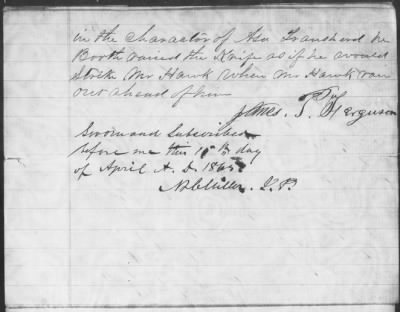 in the character of Asa Transherd he
Booth raised the Knife as if he would
Strike Mr Hawk when Mr Hawk ran
out ahead of him
James. P. Ferguson
Sworn and Subscribed
before me this 15th day
of April A. D. 1865
N C Miller. J. P.